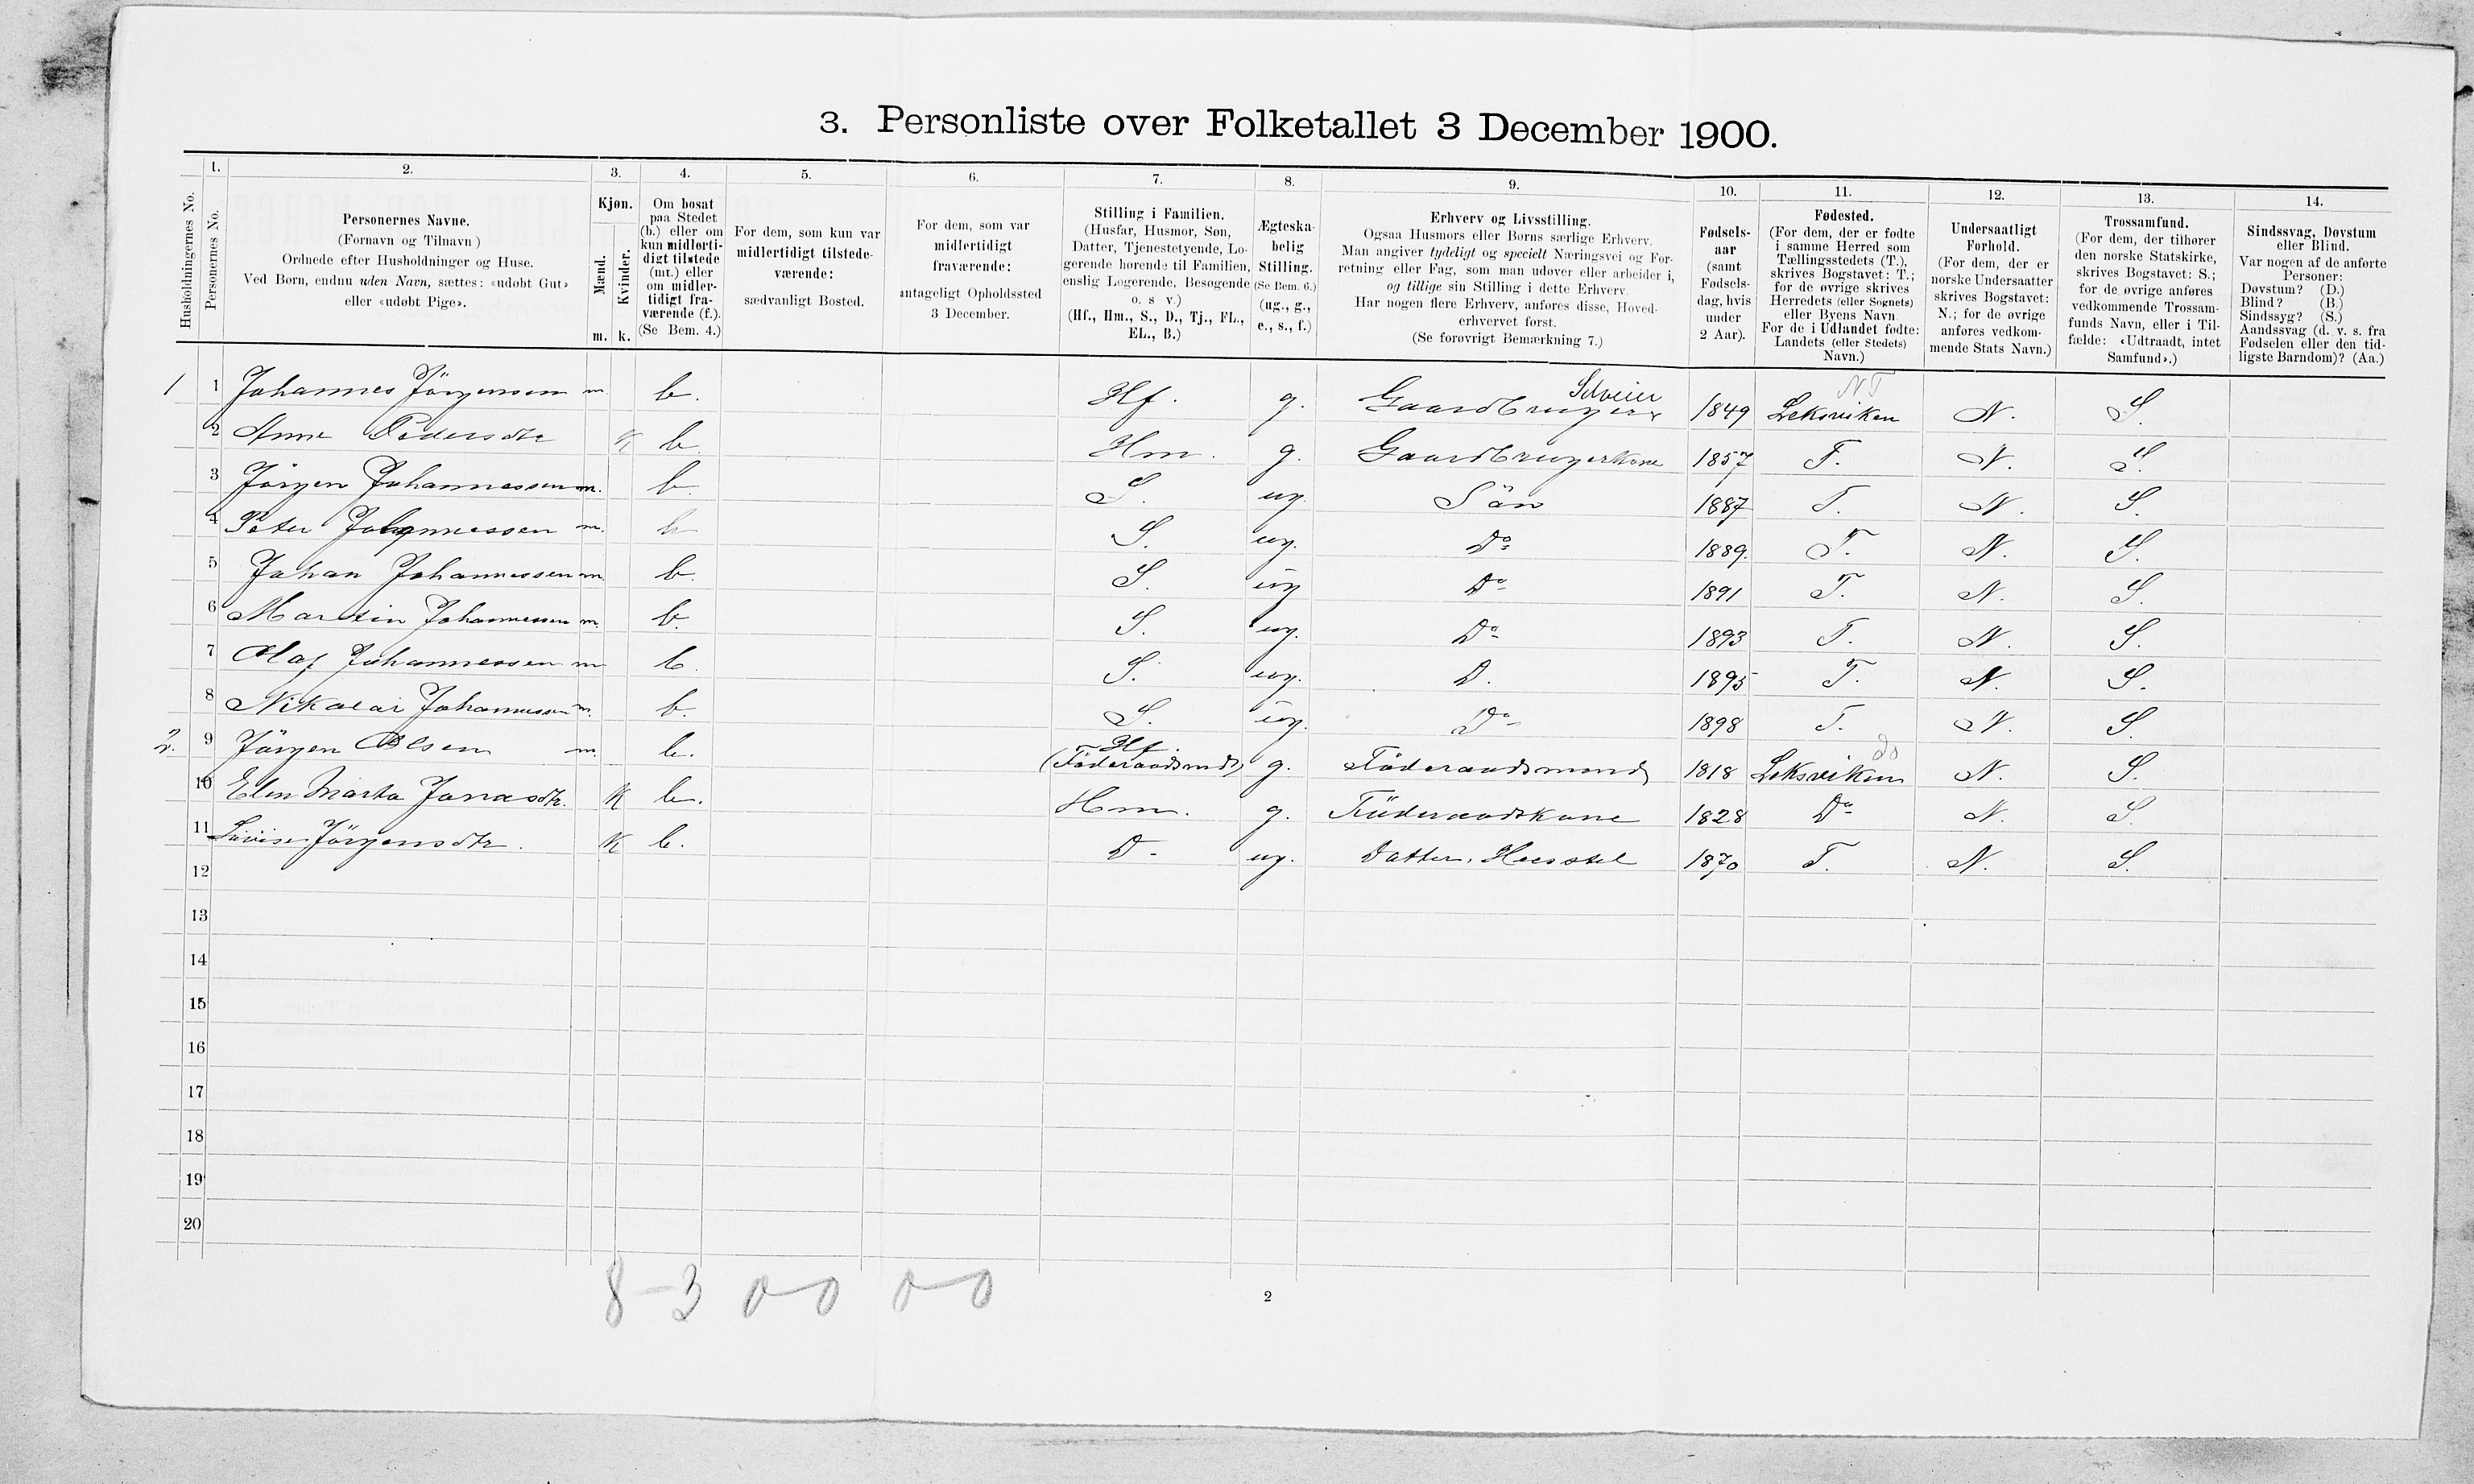 3. Personliste over Folketallet 3 December 1900.
1. 2. 3. 4. 5. 6. 7. 8. 9. 10. 11. 12. 13. 14.
Husholdningernes No.
Personernes No.
Personernes Navne.
(Fornavn og Tilnavn )
Ordnede efter Husholdninger og Huse.
Ved Børn, endnu uden Navn, sættes: «udøbt Gut»
eller «udøbt Pige».
Kjøn.
Mænd.
Kvinder.
m. k.
Om bosat
paa Stedet
(b.) eller om
kun midlerti-
digt tilstede
(mt.) eller
om midler-
tidigt fra-
værende (f.).
(Se Bem. 4.)
For dem, som kun var
midlertidigt tilstede-
værende:
sædvanligt Bosted.
For dem, som var
midlertidigt
fraværende:
antageligt Opholdssted
3 December.
Stilling i Familien.
(Husfar, Husmor, Søn,
Datter, Tjenestetyende, Lo-
gerende hørende til Familien,
enslig Logerende, Besøgende
o. s v.)
(Hf., Hm., S., D., Tj., FL.,
EL., B.)
Ægteska-
belig
Stilling.
(Se Bem. 6.)
(ug., g.,
e., s., f.)
Erhverv og Livsstilling.
Ogsaa Husmors eller Børns særlige Erhverv.
Man angiver tydeligt og specielt Næringsvei og For-
retning eller Fag, som man udøver eller arbeider i,
og tillige sin Stilling i dette Erhverv.
Har nogen flere Erhverv, anføres disse, Hoved-
erhvervet først.
(Se forøvrigt Bemærkning 7.)
Fødsels-
aar
(samt
Fødsels-
dag, hvis
under
2 Aar).
Fødested.
(For dem, der er fødte
i samme Herred som
Tællingsstedets (T.),
skrives Bogstavet: T.;
for de øvrige skrives
Herredets (eller Sognets)
eller Byens Navn
For de i Udlandet fødte:
Landets (eller Stedets)
Navn.)
Undersaatligt
Forhold.
(For dem, der er
norske Undersaatter
skrives Bogstavet:
N.; for de øvrige
anføres vedkom-
mende Stats Navn.)
Trossamfund.
(For dem, der tilhører
den norske Statskirke,
skrives Bogstavet: S.;
for de øvrige anføres
vedkommende Trossam-
funds Navn, eller i Til-
fælde: «Udtraadt, intet
Samfund».)
Sindssvag, Døvstum
eller Blind.
Var nogen af de anførte
Personer:
Døvstum? (D.)
Blind? (B.)
Sindssyg? (S.)
Aandssvag (d. v. s. fra
Fødselen eller den tid-
ligste Barndom)? (Aa.)
Selveier NT
1 1 Johannes Jörgensen m. b. Hf. g. Gaardbruger 1849 Leksviken N. S.
2 Anne Pedersdtr K b. Hm. g. Gaardbrugerkone 1857 T. N. S.
3 Jörgen Johannessen m. b. S. ug. Sön 1887 T. N. S.
4 Peter Johannessen m. b S. ug. Do 1889. T. N. S.
5 Johan Johannessen m. b. S. ug Do 1891 T. N. S.
6 Martin Johannessen m. b. S. ug. Do 1893 T. N. S.
7 Olaf Johannessen m b. S. ug. D. 1895 T. N. S.
8 Nikolai Johannessen m. b. S. ug. Do 1898 T. N. S.
Hf. do
2. 9 Jörgen Olsen m. b. (Föderaadsmd) g. Föderaadsmand 1818 Leksviken N. S.
10 Elen Marta Jonasdtr. K b. Hm. g. Föderaadskone 1828 Do N. S.
11 Lovise Jörgensdtr. K b. D. ug. Datter. Husstel 1870 T. N. S.
12
13
14
15
16
17
18
19
20
8-3 0-0 0-0
2